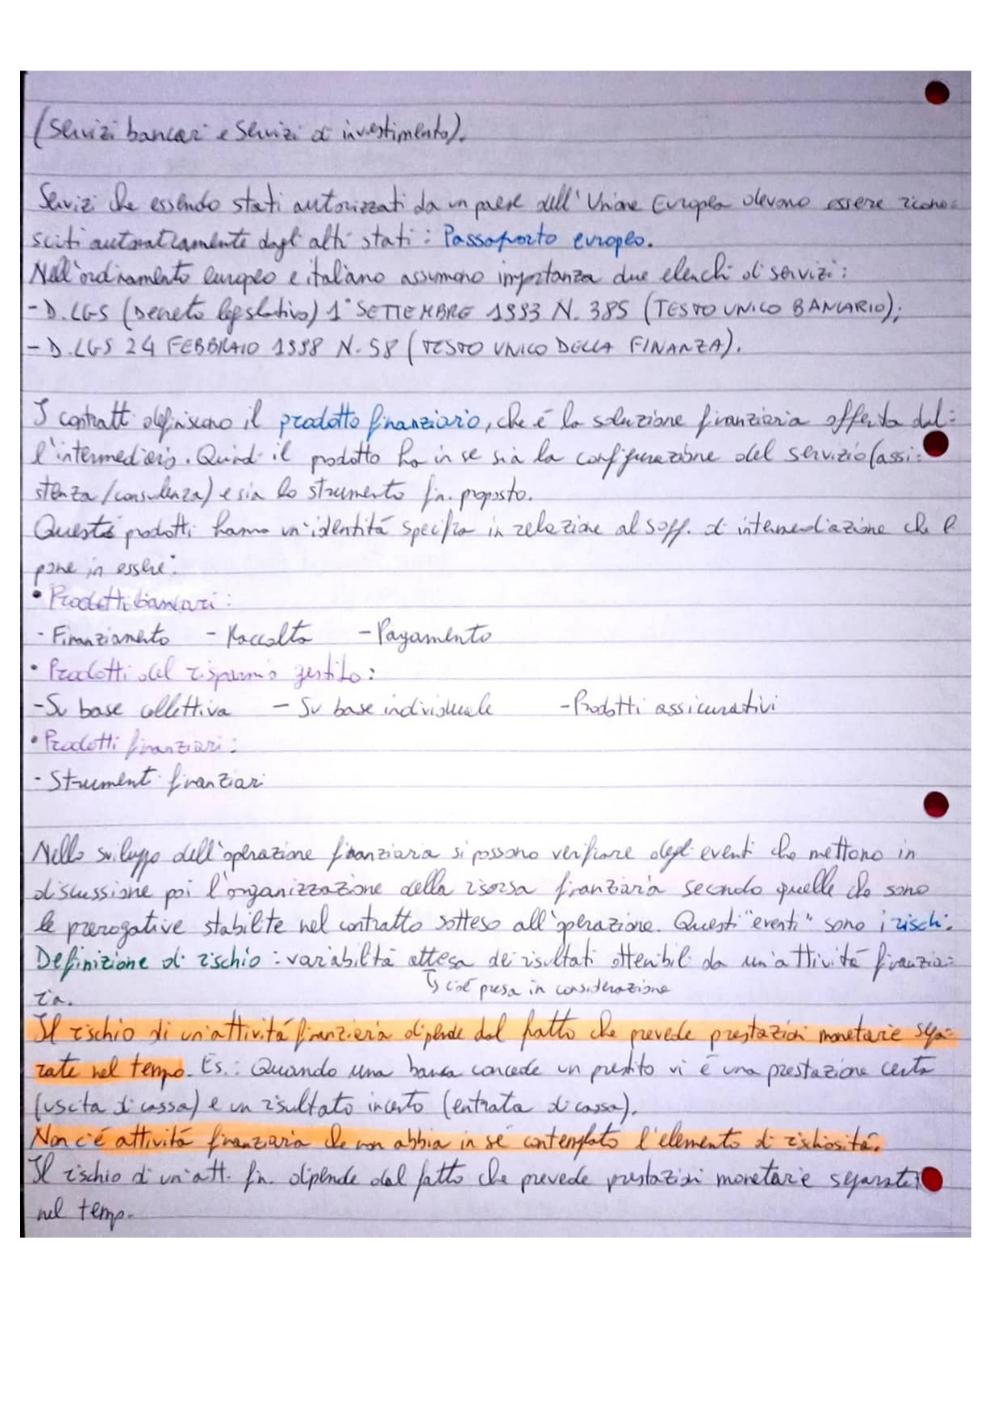 (Servizi bancari e Servizi di investimento).
Servizi che essendo stati autorizzati da un paese dell'Unione Europea devono essere ricono=
sciti automaticamente dagli altri stati: Passaporto europeo.
Nell'ordinamento europeo e italiano assumono importanza due elenchi di servizi:
- D.LGS (Decreto legislativo) 1° SETTEMBRE 1993 N. 385 (TESTO UNICO BANCARIO);
- D.LGS 24 FEBBRAIO 1998 N. 58 (TESTO UNICO DELLA FINANZA).
I contratti definiscono il prodotto finanziario, che è la soluzione finanziaria offerta dal=
l'intermediario. Quindi il prodotto ha in se sia la configurazione del servizio (assi=
stenza/consulenza) e sia lo strumento fin. proposto.
Questi prodotti hanno un'identità specifica in relazione al sogg. di intermediazione che li
pone in essere:
• Prodotti bancari:
- Finanziamento - Raccolta - Pagamento
• Prodotti del risparmio gestito:
- Su base collettiva - Su base individuale - Prodotti assicurativi
• Prodotti finanziari:
- Strumenti finanziari
Nello sviluppo dell'operazione finanziaria si possono verificare degli eventi che mettono in
discussione poi l'organizzazione della risorsa finanziaria secondo quelle che sono
le prerogative stabilite nel contratto sotteso all'operazione. Questi "eventi" sono i rischi.
Definizione di rischio: variabilità attesa dei risultati ottenibili da un'attività finanzia=
ria.
↳ cioè presa in considerazione
Il rischio di un'attività finanziaria dipende dal fatto che prevede prestazioni monetarie sepa=
rate nel tempo. Es.: Quando una banca concede un prestito vi è una prestazione certa
(uscita di cassa) e un risultato incerto (entrata di cassa).
Non c'è attività finanziaria che non abbia in sé contemplato l'elemento di rischiosità.
Il rischio di un'att. fin. dipende dal fatto che prevede prestazioni monetarie separate
nel tempo.